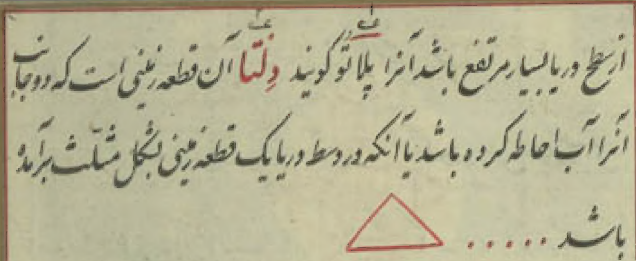 از سطح دریا بسیار مرتفع باشد آنرا پلاتو گویند دلتا آن قطعه زمینی است که دو جانب
آنرا آب احاطه کرده باشد یا آنکه در وسط دریا یک قطعه زمینی بشکل مثلث برآمده
باشد .....